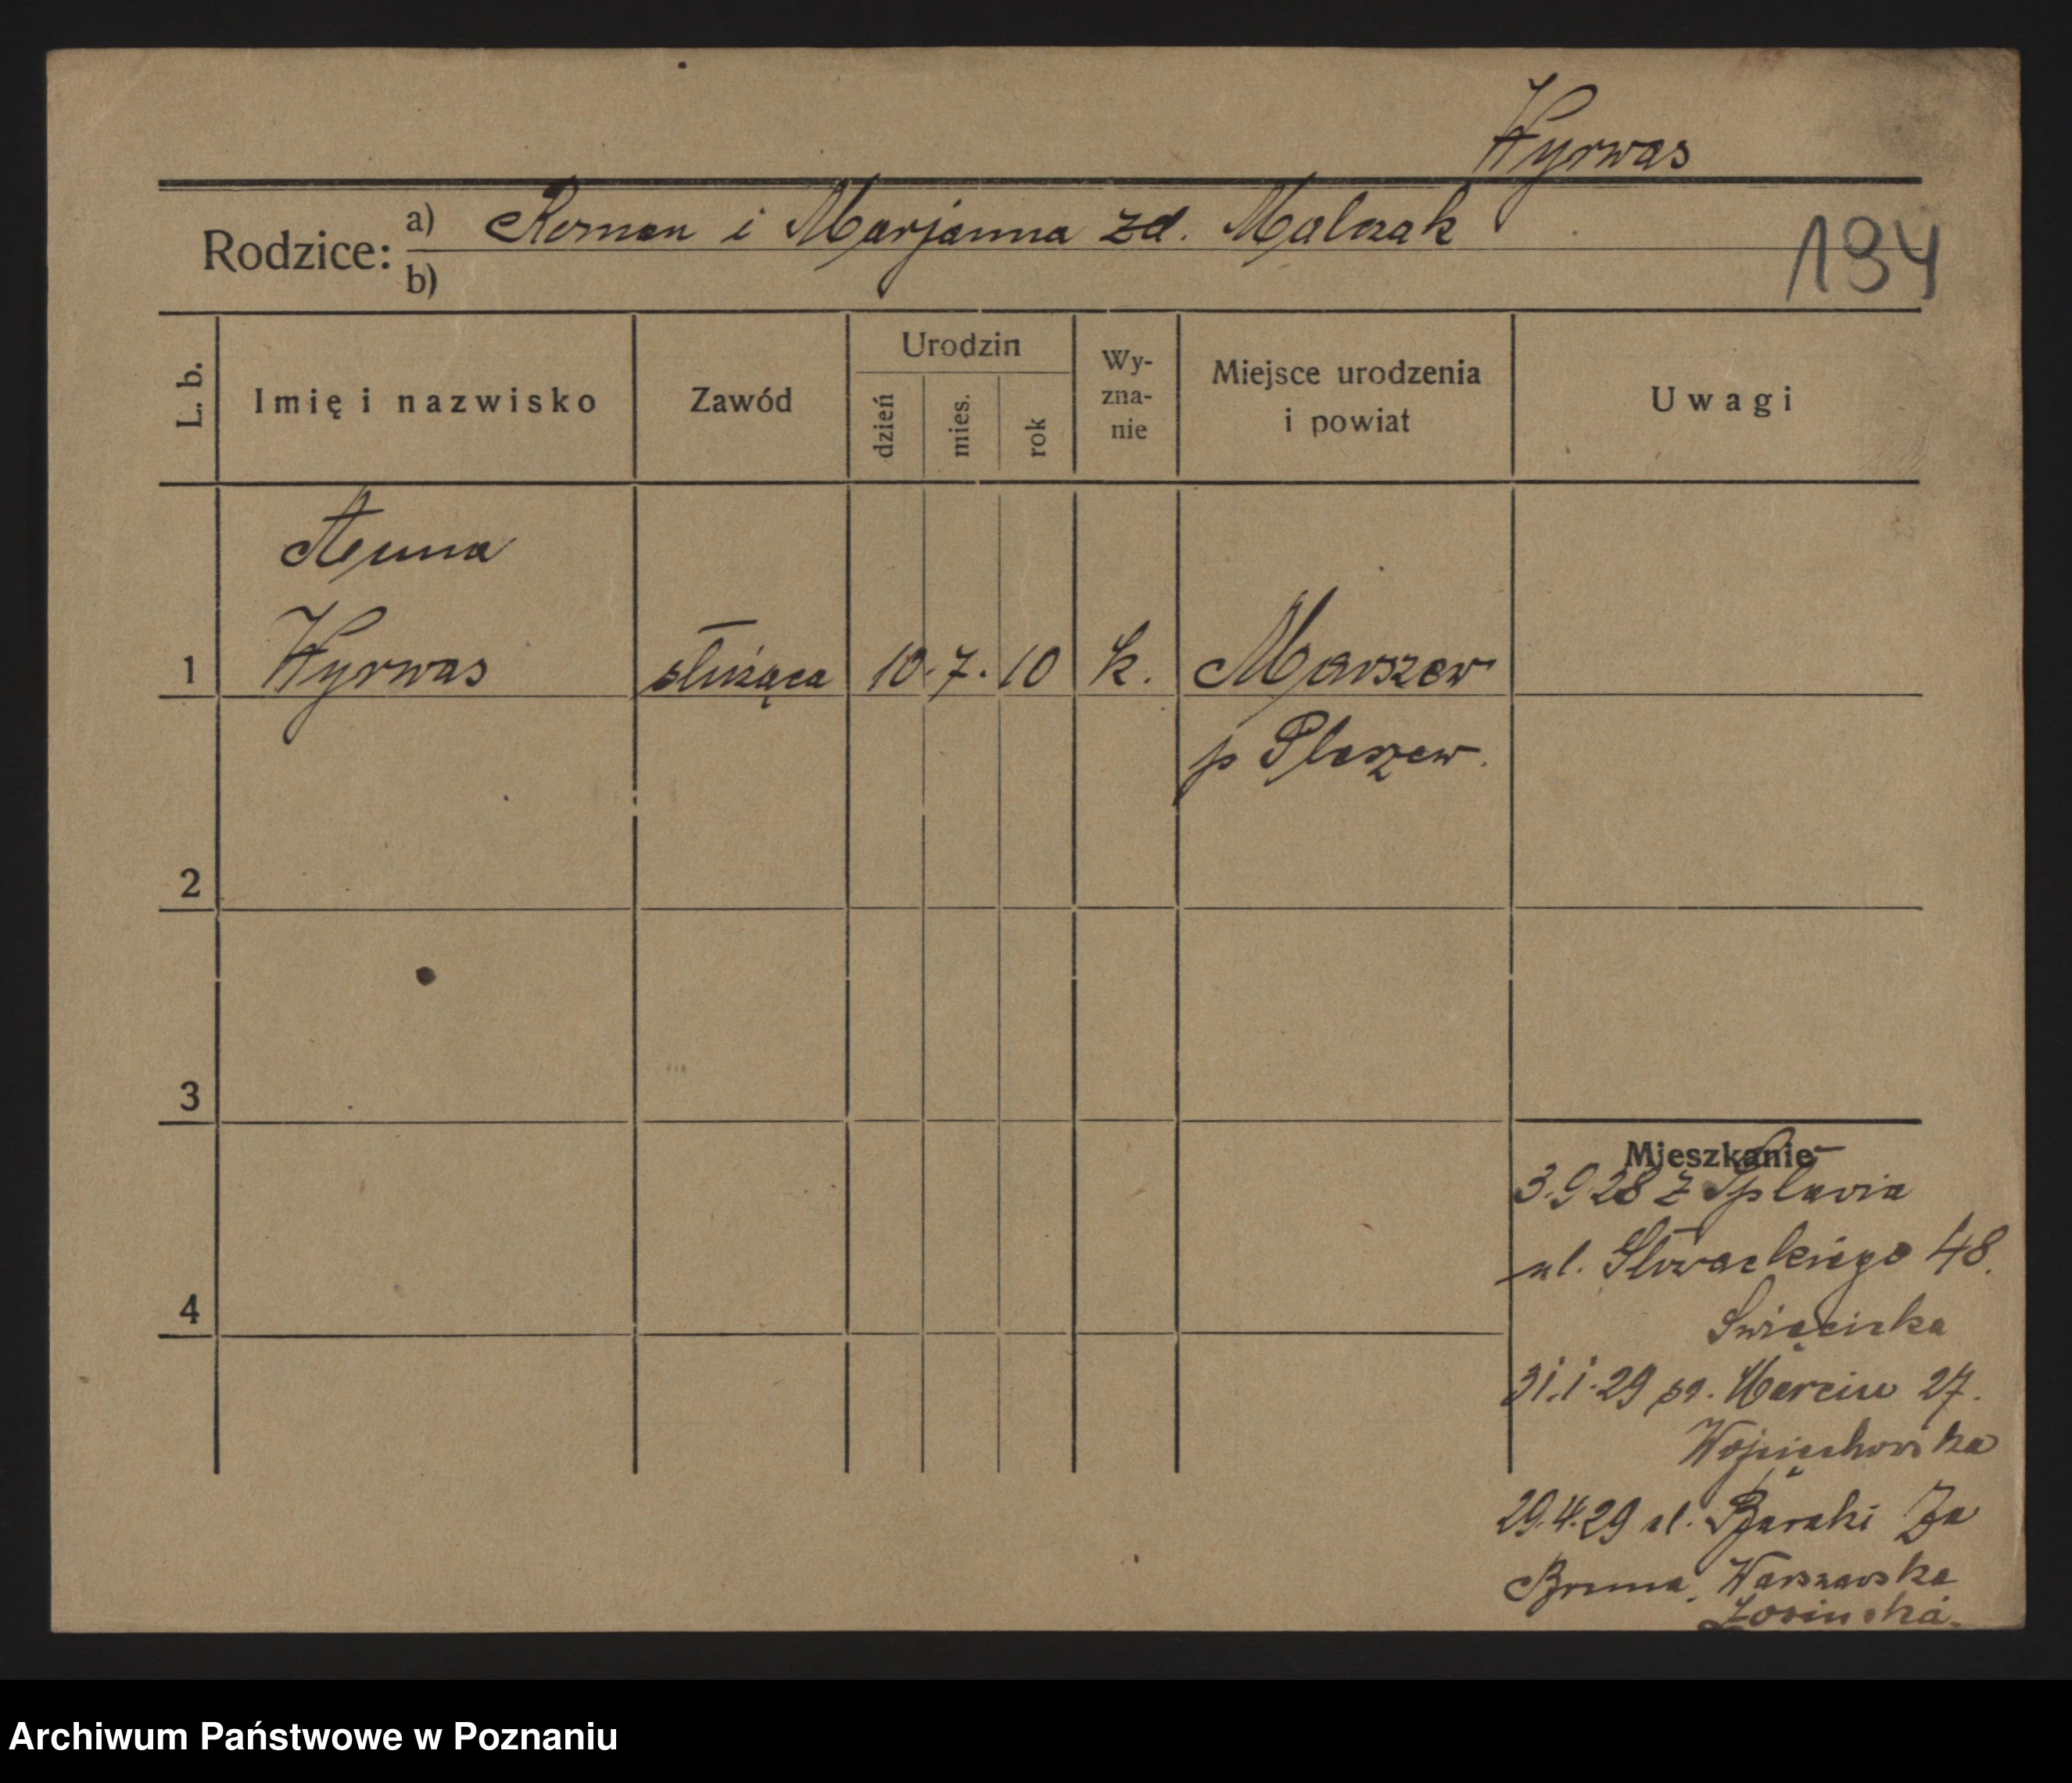 Wyrwas
Rodzice: a) Roman i Marjanna zd. Malczak
b)
194
L. b.
Imię i nazwisko
Zawód
Urodzin
dzień
mies.
rok
Wy-
zna-
nie
Miejsce urodzenia
i powiat
Uwagi
Anna
1 Wyrwas służąca 10. 7. 10 k. Marszew
p Pleszew.
2
3
4
Mieszkanie
3.9.28 z Spławia
ul. Słowackiego 48.
Święcicka
31.1.29 św. Marcin 27.
Wojciechowska
29.4.29 ul. Baraki Za
Brama, Warszawska
Łosińska.
Archiwum Państwowe w Poznaniu